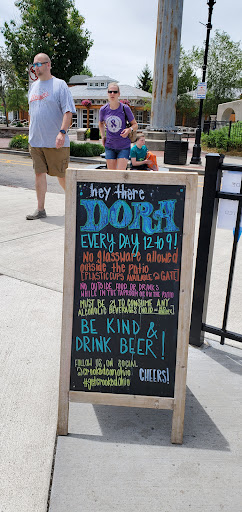 hey there
DORA
EVERY DAY 12 to 9!
No GLASSWARE allowed
outside the Patio
[PLASTIC CUPS AVAILABLE @ GATE]
NO OUTSIDE FOOD OR DRINKS
WHILE IN THE TAPROOM OR ON THE PATIO
MUST BE 21 TO CONSUME ANY
ALCOHOLIC BEVERAGES
BE KIND &
DRINK BEER!
FOLLOW US ON SOCIAL
CHEERS!